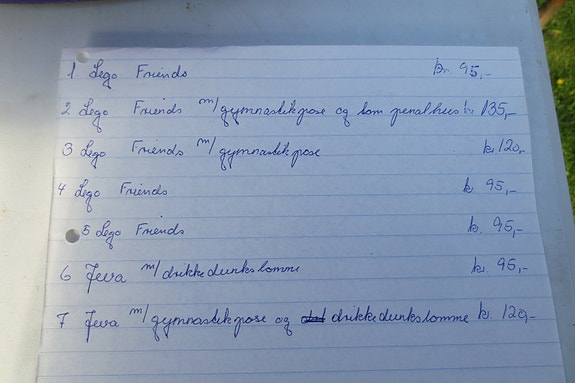 1 Lego Friends kr. 95,-
2 Lego Friends m/gymnastikpose og tom penalhus kr 135,-
3 Lego Friends m/gymnastikpose kr. 120,-
4 Lego Friends kr. 95,-
5 Lego Friends kr. 95,-
6 Jeva m/drikkedunkslomme kr. 95,-
7 Jeva m/gymnastikpose og drikkedunkslomme kr. 120,-